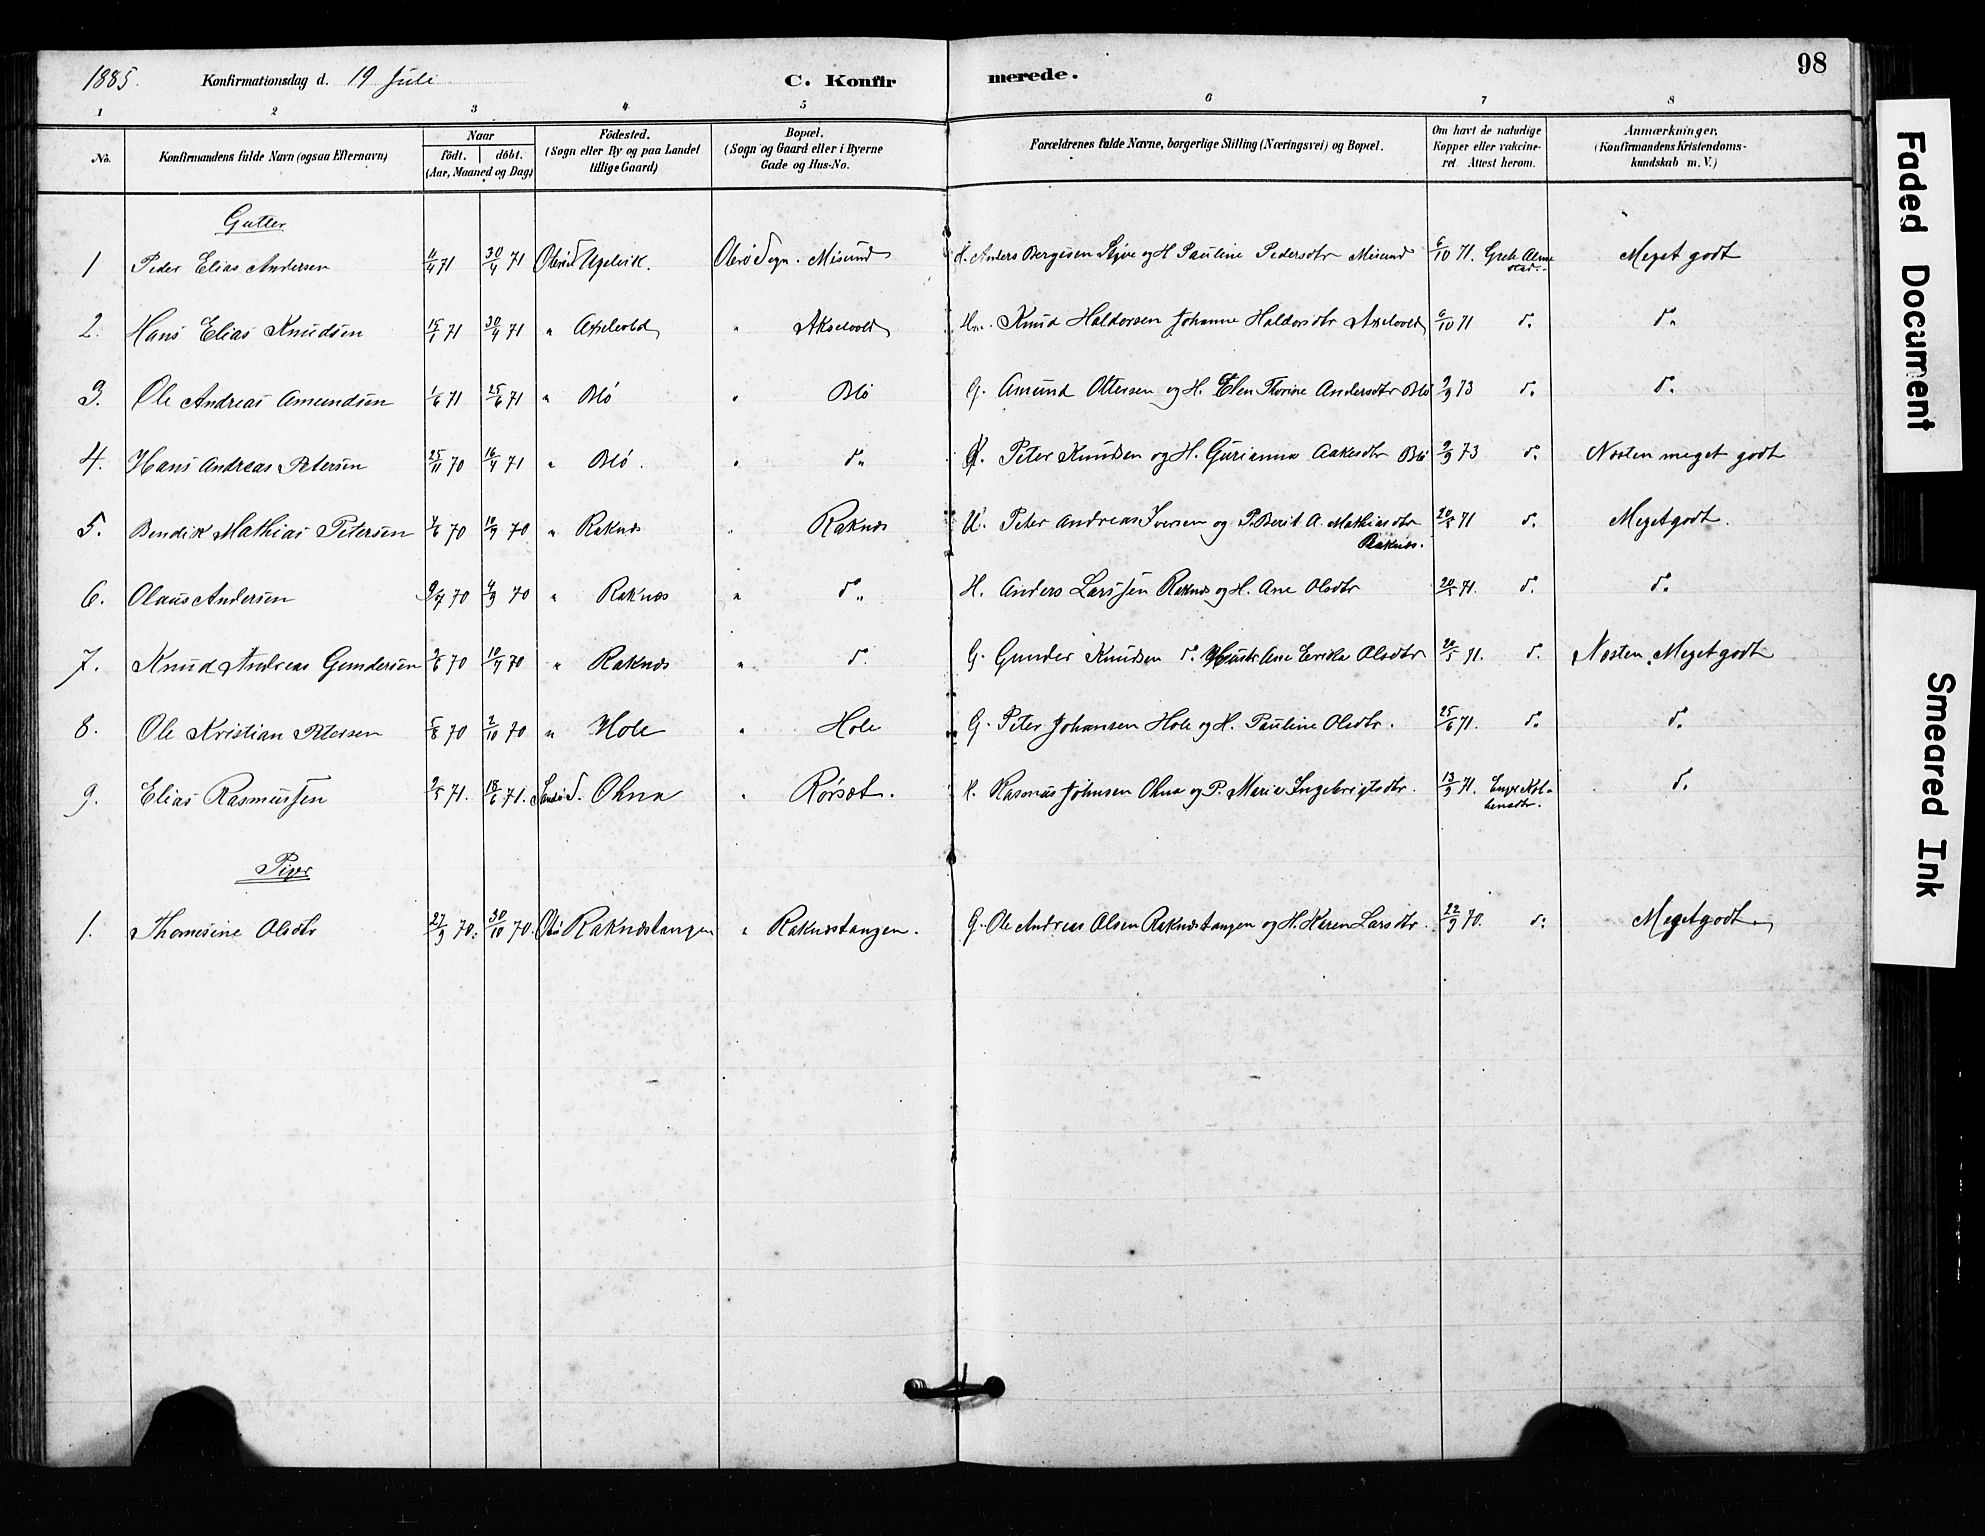 1885. Konfirmationsdag d. 19 Juli C. Konfirmerede. 98
1 2 3 4 5 6 7 8
No. Konfirmandens fulde Navn (ogsaa Efternavn) Naar födt. döbt. (Aar, Maaned og Dag) Födested. (Sogn eller By og paa Landet tillige Gaard) Bopæl. (Sogn og Gaard eller i Byerne Gade og Hus-No. Forældrenes fulde Navne, borgerlige Stilling (Næringsvei) og Bopæl. Om havt de naturlige Kopper eller vakcineret. Attest herom. Anmærkninger. (Konfirmandens Kristendomskundskab m. V.)
Gutter
1 Peder Elias Andersen 71 30/4 71 Ugelvik. Sogn. Misund H. Anders Pauline Pedersdtr Misund 6/10 71. Meget godt
2. Hans Elias Knudsen 71 30/4 71 " Axelvold " Akselvold Knud Haldorsen Johanne Haldorsdtr Axelvold 6/10 71 do do
3. Ole Andreas Amundsen 1/6 71 25/6 71 " Blö " Blö G. Amund Ottersen og H. Elen Thorine Andersdtr Blö 2/9 73 do do
4. Hans Andreas Petersen 25/11 70 16/4 71 " Blö. " do Peter Knudsen og H. Gurianna Aakesdtr Blö 2/9 73 do Næsten meget godt
5. Bendik Mathias Petersen 70 70 " Raknæs " Raknæs U. Peter Andreas Iversen og P. Berit A. Mathiasdtr Raknæs. 20/5 71 do Meget godt.
6. Olaus Andersen 70 4/9 70 " Raknæs " do H. Anders Larssen Raknæs og H. Ane Olsdtr 20/5 71. do do
7. Knud Andreas Gundersen 70 70 " Raknæs " do G. Gunder Knudsen do Hustr Ane Ericka Olsdtr 20/5 71. do Næsten Meget godt
8. Ole Kristian Petersen 5/8 70 2/10 70 " Hole " Hole G. Peter Johansen Hole og H. Pauline Olsdtr. 25/6 71. do do
9. Elias Rasmussen 71. 18/6 71. Ohna " Rörsæt. Rasmus Johnsen Ohna og P. Marie Ingebrigtsdtr. 13/9 71. do
Piger
1. Thomesine Olsdtr 27/9 70. 30/10 70. Raknæstangen " Raknæstangen. G. Ole Andreas Olsen Raknæstangen og H. Karen Larsdtr. 22/9 70. do Meget godt.
Faded Document
Smeared Ink